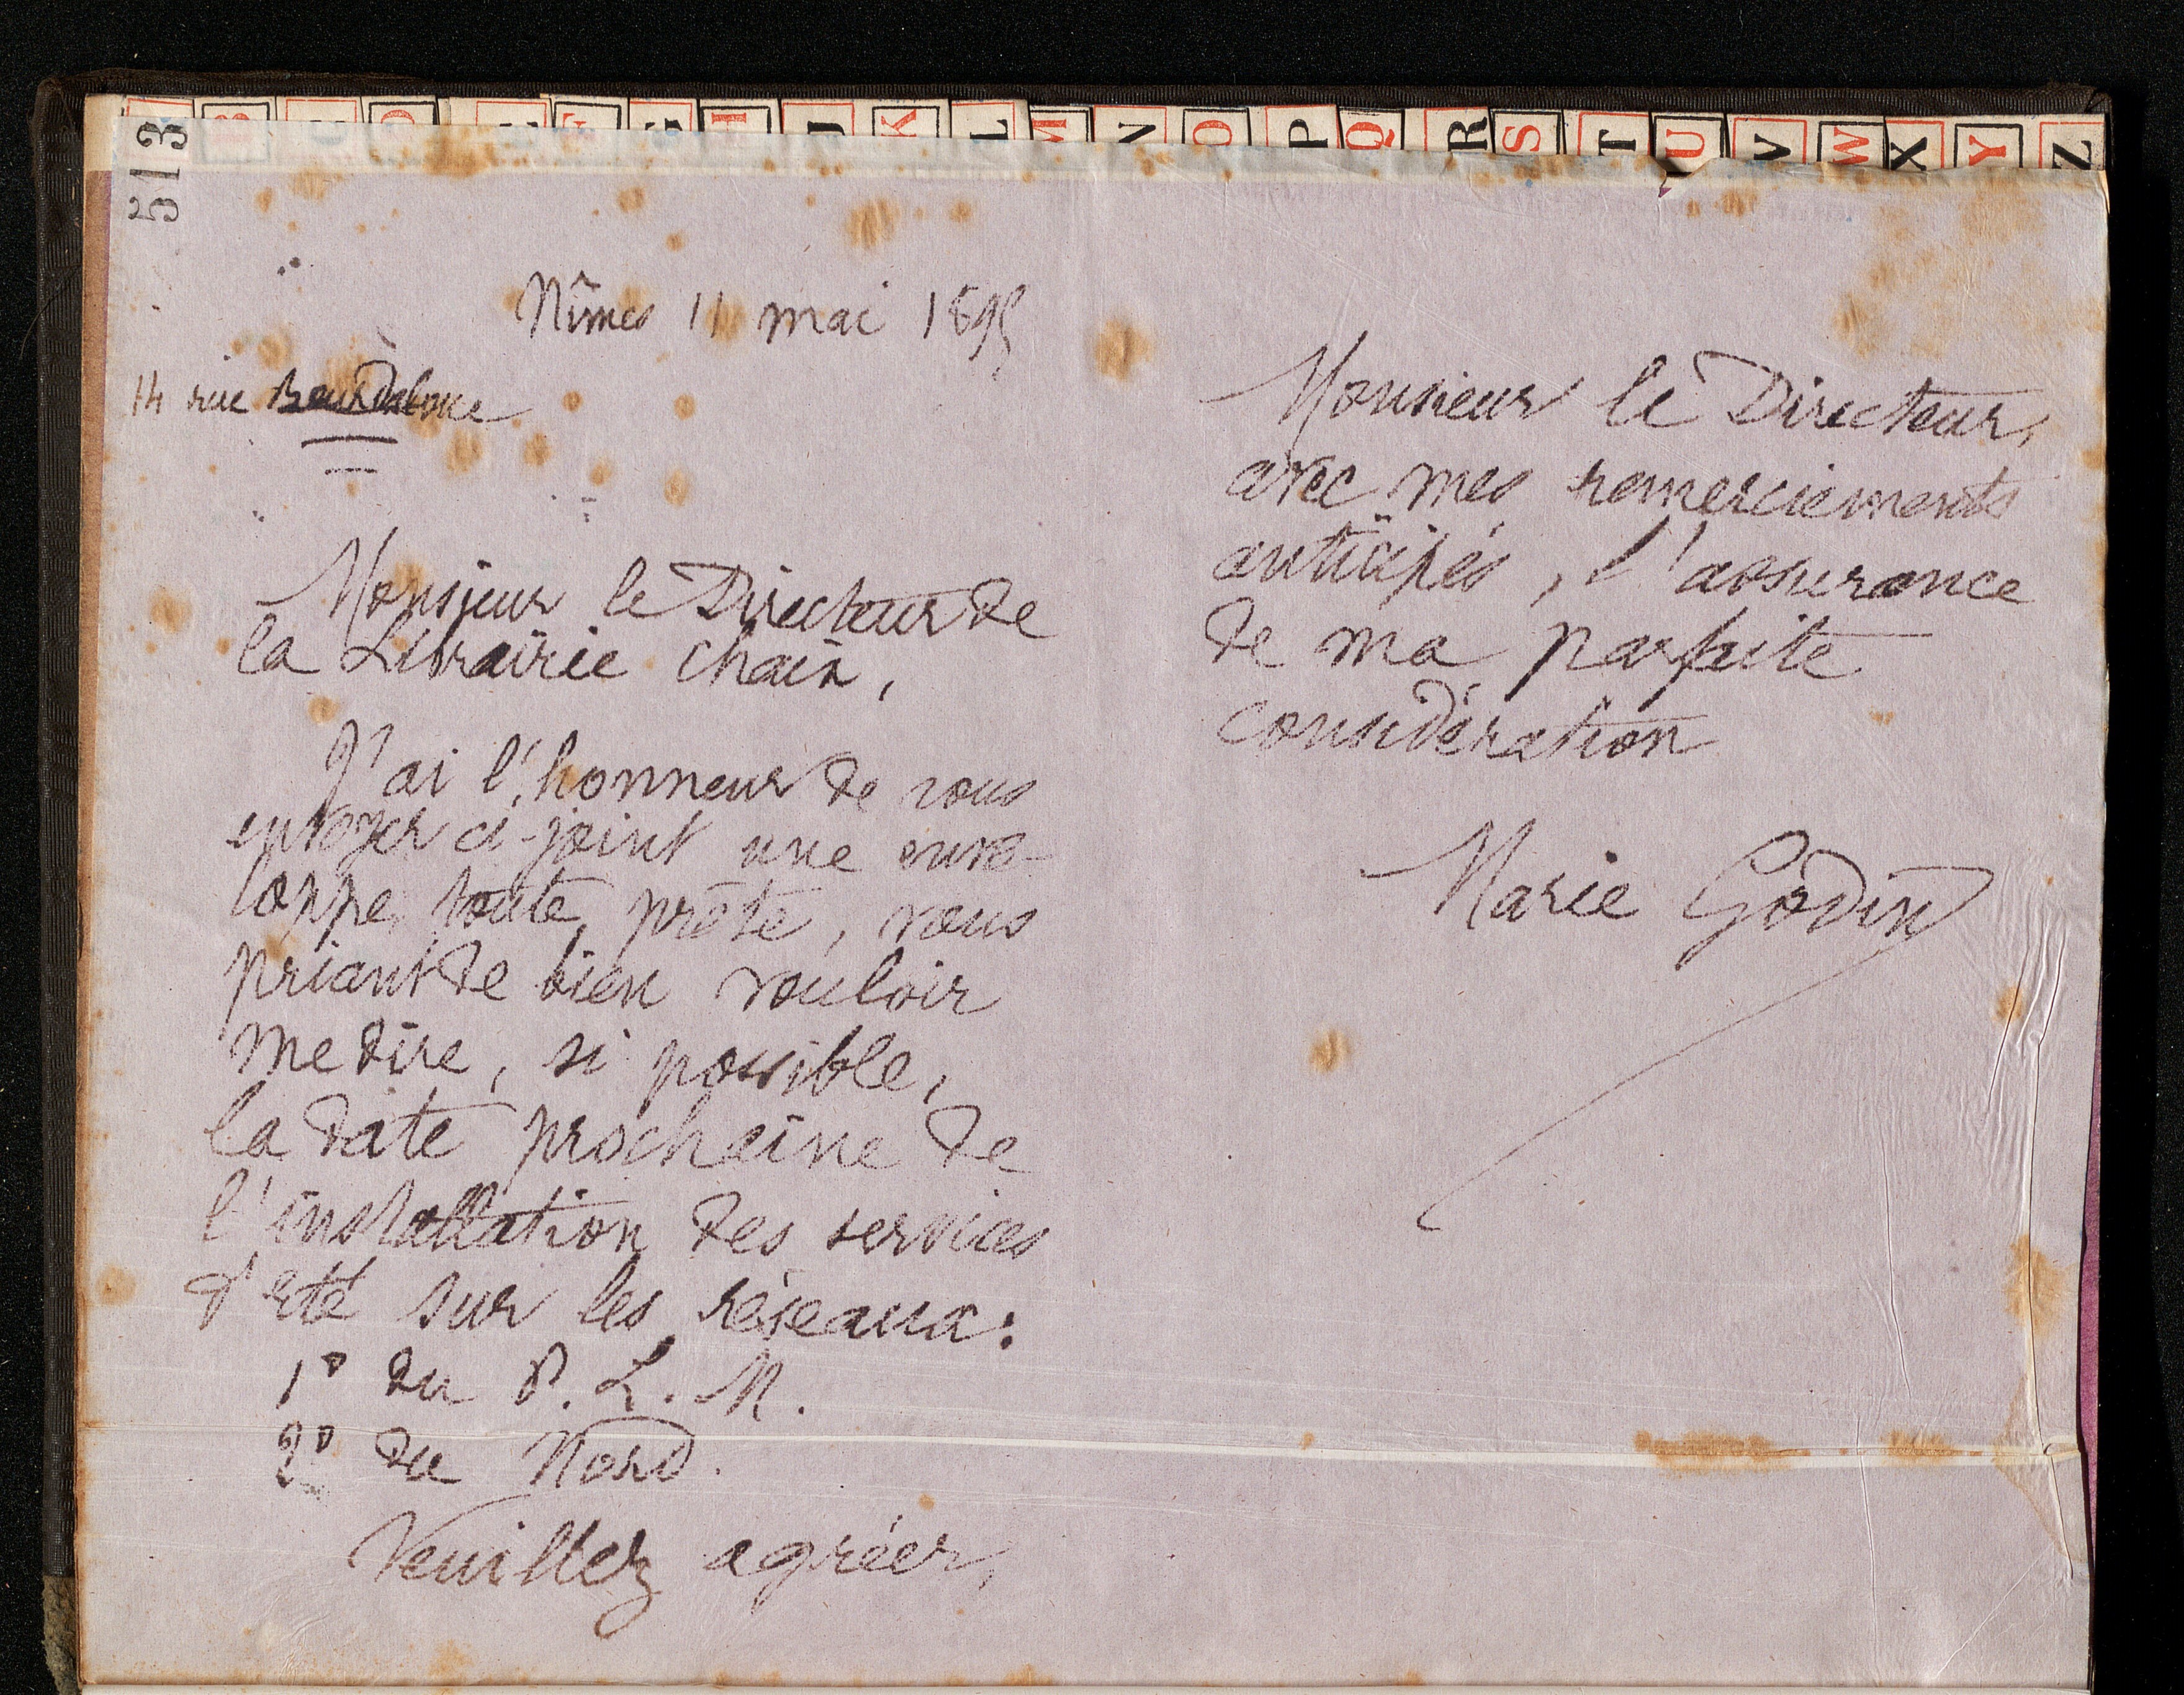 513
B C D F G H J K L M N O P Q R S T U V W X Y Z
Nîmes 11 mai 1895
14 rue Bourdaloue
Monsieur le Directeur de
la Librairie Chaix,
J'ai l'honneur de vous
envoyer ci-joint une enve-
loppe toute prête, vous
priant de bien vouloir
me dire, si possible,
la date prochaine de
l'installation des services
d'été sur les réseaux :
1° du P. L. M.
2° du Nord.
Veuillez agréer,
Monsieur le Directeur,
avec mes remerciements
anticipés, l'assurance
de ma parfaite
considération
Marie Godin